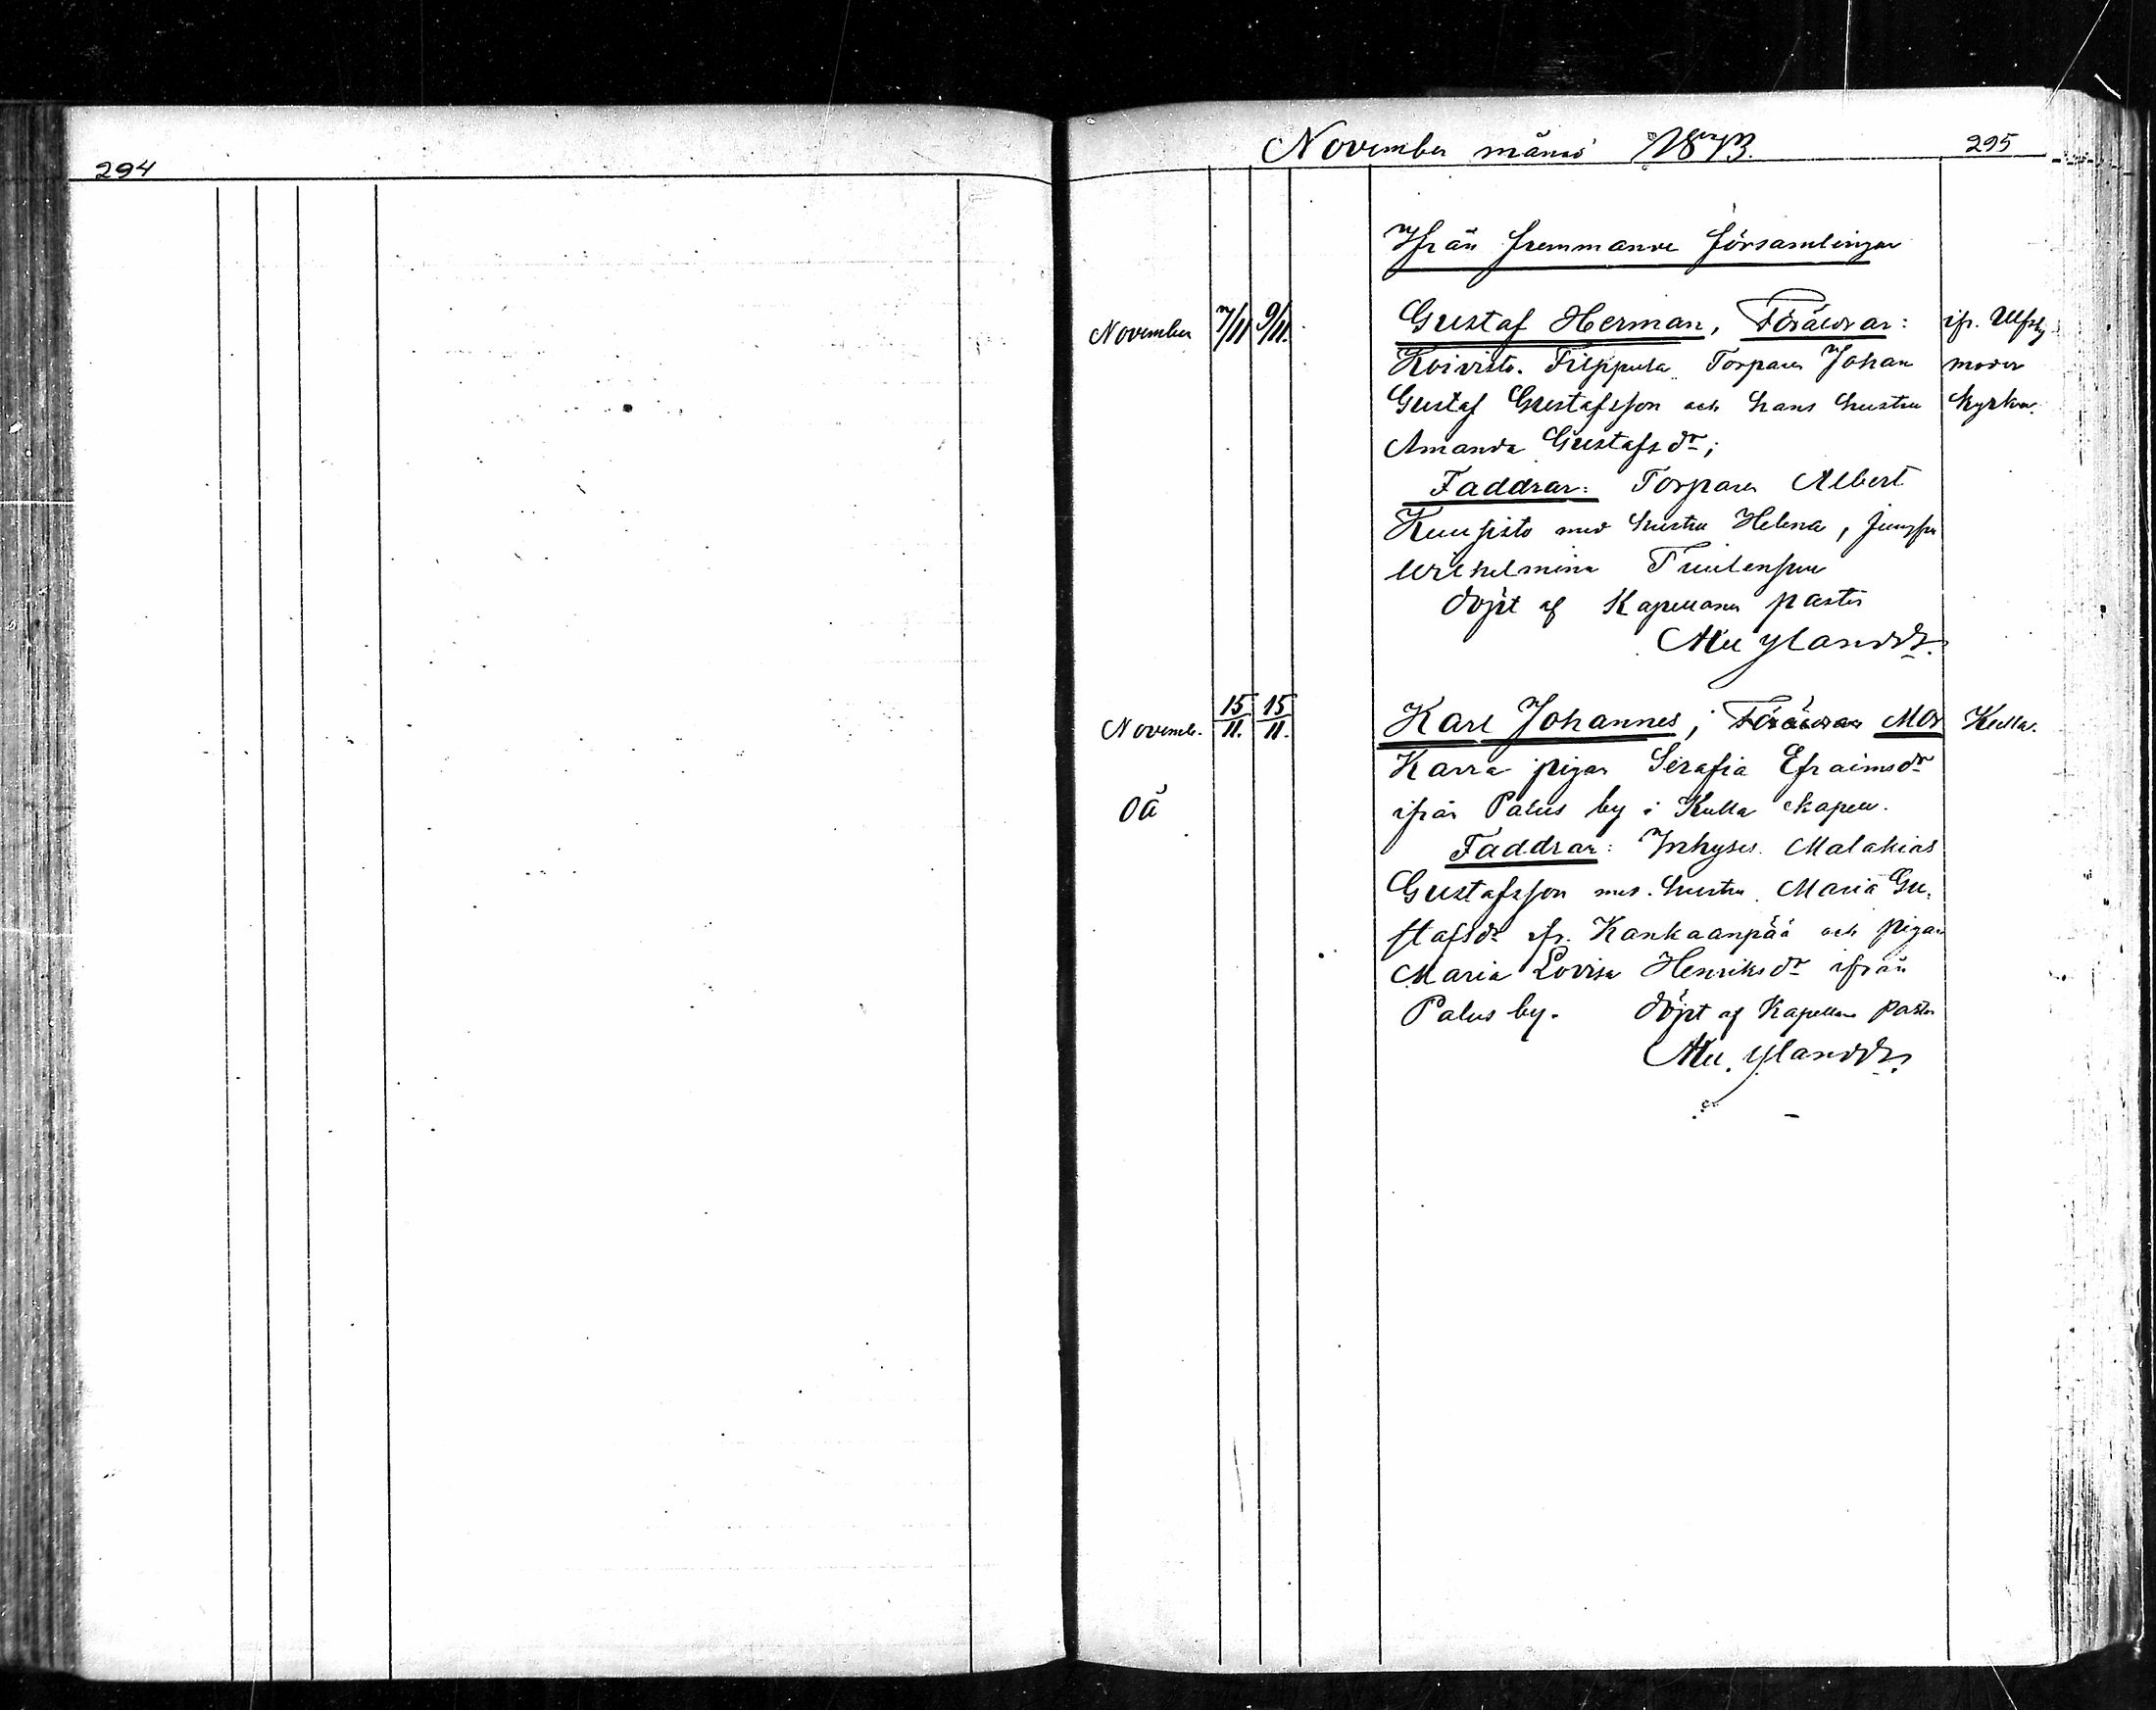 294
November månad 1873. 295
Ifrån fremmande församlingar
November 7/11 9/11. Gustaf Herman, Föräldrar: ifr. Ulfsby
Koivisto. Filppula Torparen Johan moder
Gustaf Gustafsson och hans hustru kyrkan.
Amanda Gustafsdr;
Faddrar: Torparen Albert
Kuusisto med hustru Helena, jungfru
Wilhelmina
döpt af Kapellanen pastor
Ylandr.
Novemb. 15/11. 15/11. Karl Johannes; Föräldrar Mor Kulla.
Karra pigan Serafia Efraimsdr
oä ifrån Palus by i Kulla kapell.
Faddrar: Inhyses. Malakias
Gustafsson med hustru Maria Gu-
stafsdr ifr. Kankaanpää och pigan
Maria Lovisa Henriksdr ifrån
Palus by. döpt af Kapellan pastor
Ylandr.